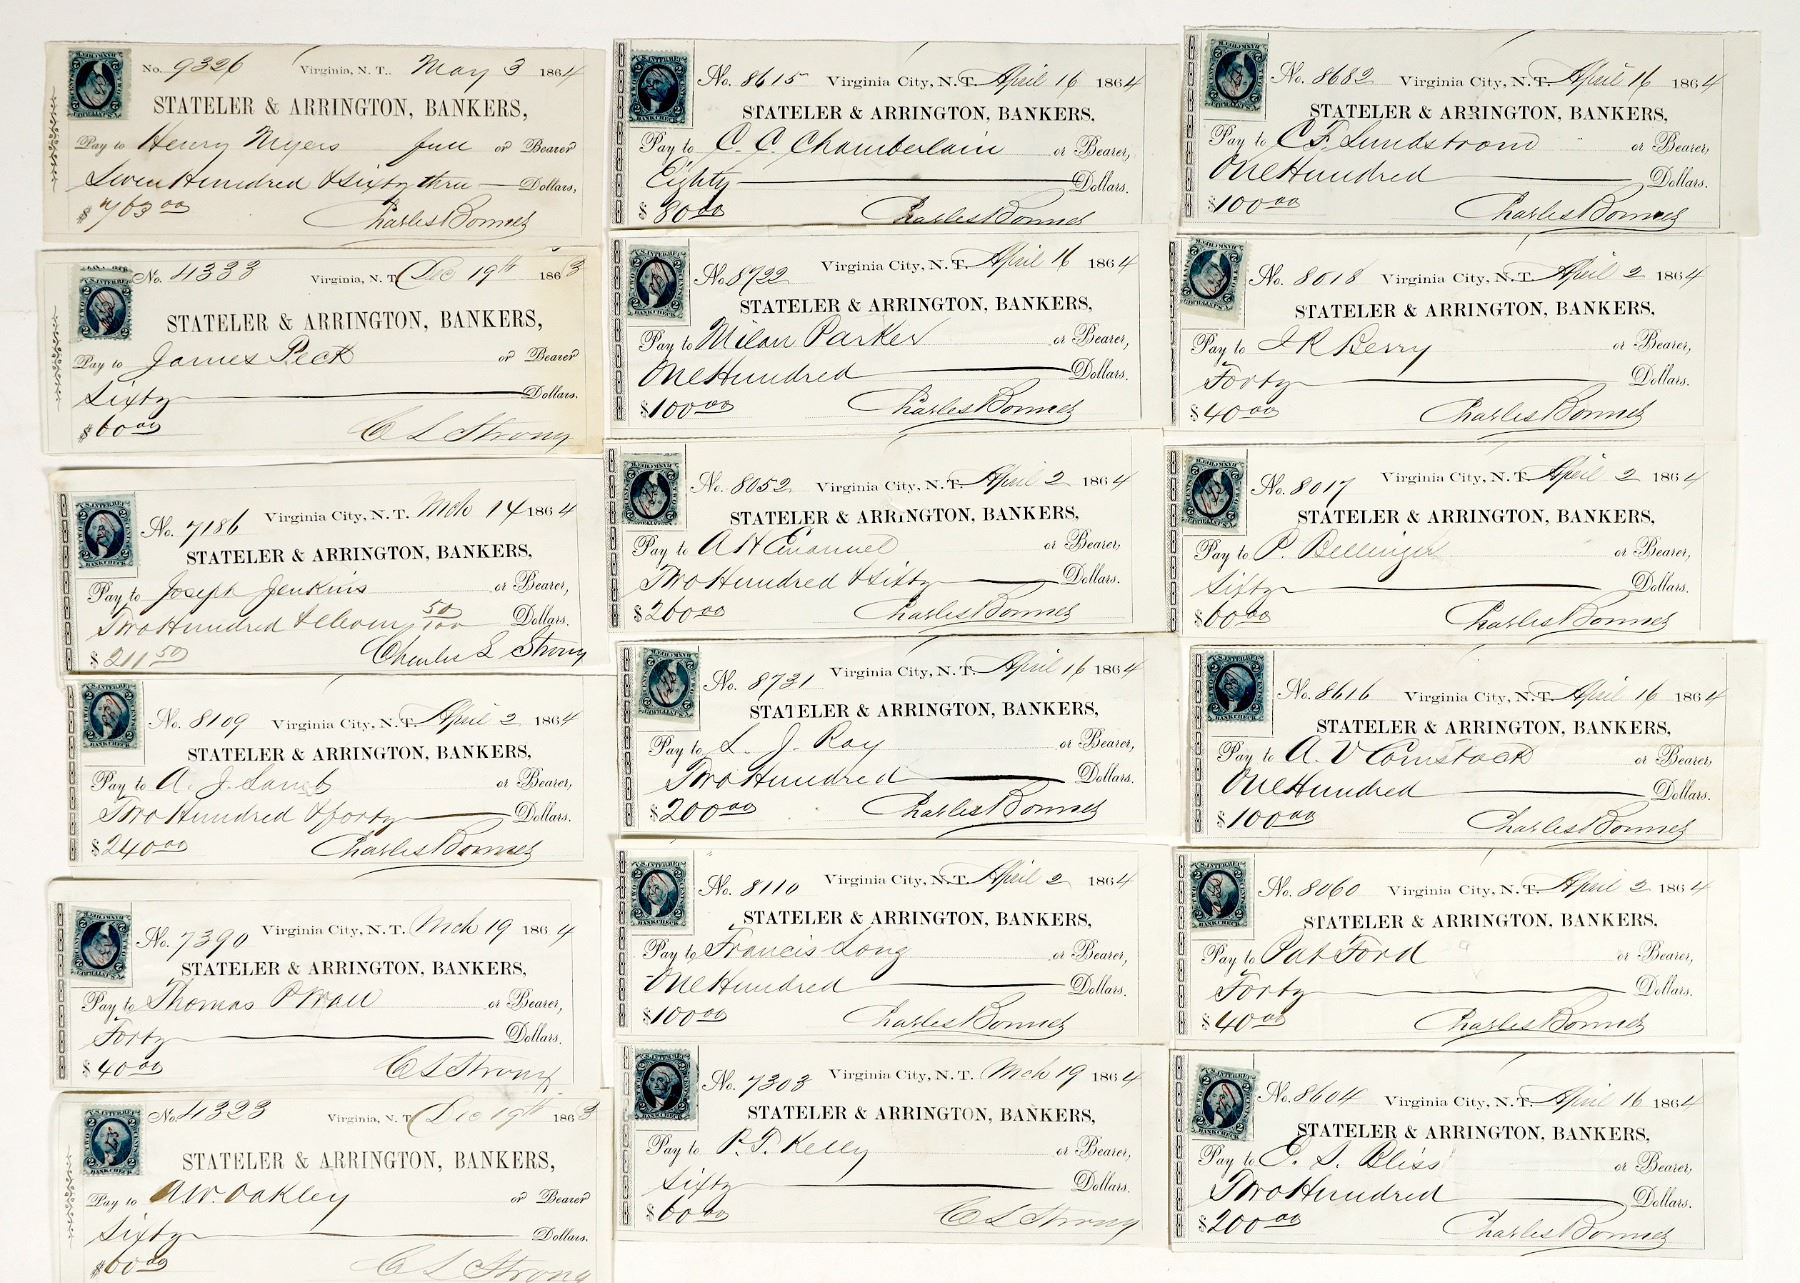 No. 9326 Virginia, N. T., May 3 1864
STATELER & ARRINGTON, BANKERS,
Pay to Henry Myers full or Bearer
Seven Hundred & Sixty three Dollars,
$763 00 Charles Bonner
No. 4333 Virginia, N. T. Dec 19th 1863
STATELER & ARRINGTON, BANKERS,
Pay to James Peck or Bearer
Sixty Dollars.
$60 00 C L Strong
No. 7186 Virginia City, N. T. Mch 14 1864
STATELER & ARRINGTON, BANKERS,
Pay to Joseph Jenkins or Bearer,
Two Hundred & eleven 50/100 Dollars.
$211 50 Charles L Strong
No. 8109 Virginia City, N.T. April 2 1864
STATELER & ARRINGTON, BANKERS,
Pay to A. J. or Bearer,
Two Hundred & forty Dollars.
$240 00 Charles Bonner
No. 7390 Virginia City, N. T. Mch 19 1864
STATELER & ARRINGTON, BANKERS,
Pay to Thomas or Bearer,
Forty Dollars.
$40 00 C L Strong
No. 4323 Virginia, N. T. Dec 19th 1863
STATELER & ARRINGTON, BANKERS,
Pay to A.W. Oakley or Bearer
Sixty Dollars.
$60 00 C L Strong
No. 8615 Virginia City, N.T. April 16 1864
STATELER & ARRINGTON, BANKERS,
Pay to C. C. Chamberlain or Bearer,
Eighty Dollars.
$80 00 Charles Bonner
No. 8722 Virginia City, N.T. April 16 1864
STATELER & ARRINGTON, BANKERS,
Pay to Milan Parker or Bearer,
One Hundred Dollars.
$100 00 Charles Bonner
No. 8052 Virginia City, N.T. April 2 1864
STATELER & ARRINGTON, BANKERS,
Pay to A H Emanuel or Bearer,
Two Hundred & Sixty Dollars.
$260 00 Charles Bonner
No. 8731 Virginia City, N. T. April 16 1864
STATELER & ARRINGTON, BANKERS,
Pay to L. J. Ray or Bearer,
Two Hundred Dollars.
$200 00 Charles Bonner
No. 8110 Virginia City, N.T. April 2 1864
STATELER & ARRINGTON, BANKERS,
Pay to Francis Long or Bearer,
One Hundred Dollars.
$100 00 Charles Bonner
No. 7303 Virginia City, N. T. Mch 19 1864
STATELER & ARRINGTON, BANKERS,
Pay to P. T. Kelly or Bearer,
Sixty Dollars.
$60 00 C L Strong
No. 8682 Virginia City, N.T. April 16 1864
STATELER & ARRINGTON, BANKERS,
Pay to C F. Lundstrom or Bearer,
One Hundred Dollars.
$100 00 Charles Bonner
No. 8018 Virginia City, N.T. April 2 1864
STATELER & ARRINGTON, BANKERS,
Pay to J R Berry or Bearer,
Forty Dollars.
$40 00 Charles Bonner
No. 8017 Virginia City, N.T. April 2 1864
STATELER & ARRINGTON, BANKERS,
Pay to P. Bellinger or Bearer,
Sixty Dollars.
$60 00 Charles Bonner
No. 8616 Virginia City, N.T. April 16 1864
STATELER & ARRINGTON, BANKERS,
Pay to A. V Comstock or Bearer,
One Hundred Dollars.
$100 00 Charles Bonner
No. 8060 Virginia City, N.T. April 2 1864
STATELER & ARRINGTON, BANKERS,
Pay to Pat Ford or Bearer,
Forty Dollars.
$40 00 Charles Bonner
No. 8604 Virginia City, N.T. April 16 1864
STATELER & ARRINGTON, BANKERS,
Pay to E. S. Bliss or Bearer,
Two Hundred Dollars.
$200 00 Charles Bonner